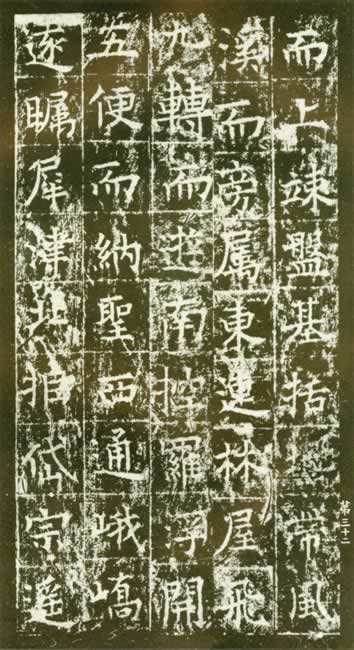 而上竦盤基括帶風
溪而旁属東連林屋飛
九轉而遊南控羅浮開
五便而納聖西通峨嶠
矚犀津北指岱宗遥
第三十二